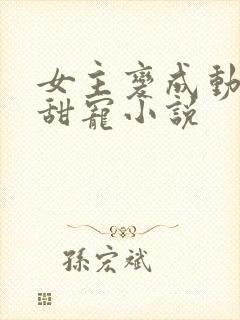 女主變成動
甜寵小說
孫宏斌